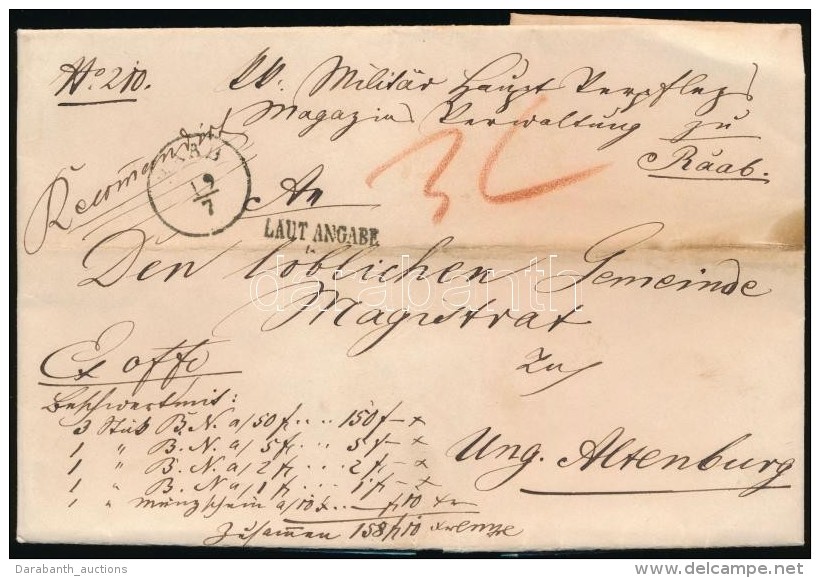 No 210.
KK. Militär Haupt Verpflegs
Magazins Verwaltung zu
Raab.
Recommandirt
RAAB
19
7
An
LAUT ANGABE
Den löblichen Gemeinde
Magistrat
zu
Ung. Altenburg
Ex offo
Beschwert mit:
3 Stük B. N. a/ 50 f. .. 150 f – x
1 " B. N. a/ 5 f. ... 5 f – x
1 " B. N. a/ 2 f. ... 2 f – x
1 " B. N. a/ 1 f ... 1 f – x
1 " Münzschein a/ 10 x .. – f 10 xr
Zusammen 158 f 10 Kreuzer
darabanth
Darabanth_auctions
delcampe.net